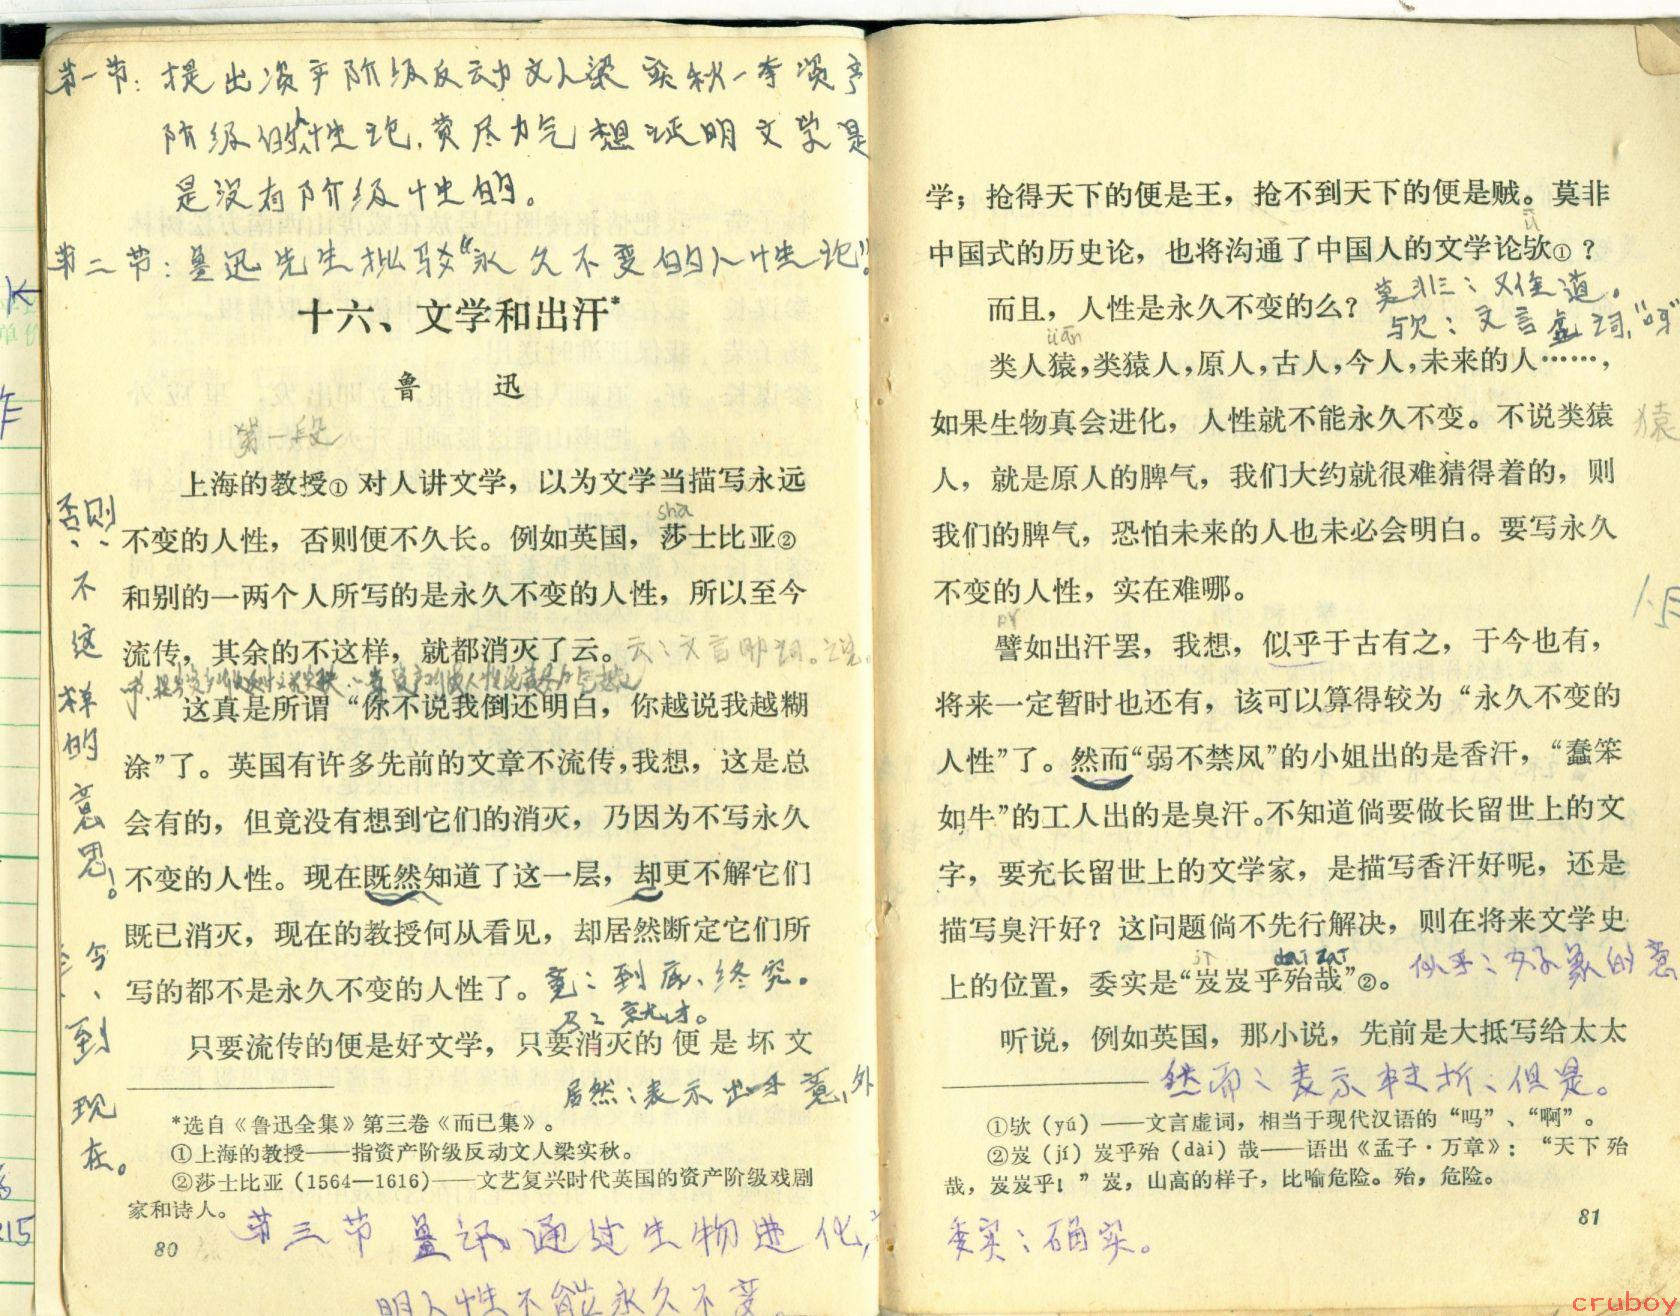 第一节：提出资产阶级反动文人梁实秋一套资产
阶级的人性论，费尽力气想证明文学是
是没有阶级性的。
第二节：鲁迅先生批驳“永久不变的人性论”。
十六、文学和出汗*
鲁 迅
第一段
上海的教授①对人讲文学，以为文学当描写永远
shā
不变的人性，否则便不久长。例如英国，莎士比亚②
和别的一两个人所写的是永久不变的人性，所以至今
流传，其余的不这样，就都消灭了云。云：文言助词。说
这真是所谓“你不说我倒还明白，你越说我越糊
涂”了。英国有许多先前的文章不流传，我想，这是总
会有的，但竟没有想到它们的消灭，乃因为不写永久
不变的人性。现在既然知道了这一层，却更不解它们
既已消灭，现在的教授何从看见，却居然断定它们所
写的都不是永久不变的人性了。竟：到底、终究。
乃：就、才。
只要流传的便是好文学，只要消灭的便是坏文
居然：表示出乎意外
*选自《鲁迅全集》第三卷《而已集》。
①上海的教授——指资产阶级反动文人梁实秋。
②莎士比亚（1564—1616）——文艺复兴时代英国的资产阶级戏剧
家和诗人。
80
第三节 鲁迅通过生物进化，
明人性不能永久不变。
否则：不这样的意思！
今、到现在。
学；抢得天下的便是王，抢不到天下的便是贼。莫非
中国式的历史论，也将沟通了中国人的文学论欤①？
而且，人性是永久不变的么？莫非：难道。
欤：文言虚词，“呀”
类人猿，类猿人，原人，古人，今人，未来的人……，
如果生物真会进化，人性就不能永久不变。不说类猿
猿
人，就是原人的脾气，我们大约就很难猜得着的，则
我们的脾气，恐怕未来的人也未必会明白。要写永久
不变的人性，实在难哪。
譬如出汗罢，我想，似乎于古有之，于今也有，
将来一定暂时也还有，该可以算得较为“永久不变的
人性”了。然而“弱不禁风”的小姐出的是香汗，“蠢笨
如牛”的工人出的是臭汗。不知道倘要做长留世上的文
字，要充长留世上的文学家，是描写香汗好呢，还是
描写臭汗好？这问题倘不先行解决，则在将来文学史
jí dài zāi
上的位置，委实是“岌岌乎殆哉”②。似乎：好象的意
听说，例如英国，那小说，先前是大抵写给太太
然而：表示转折、但是。
①欤（yú）——文言虚词，相当于现代汉语的“吗”、“啊”。
②岌（jí）岌乎殆（dài）哉——语出《孟子·万章》：“天下殆
哉，岌岌乎！”岌，山高的样子，比喻危险。殆，危险。
81
委实：确实。
cruboy